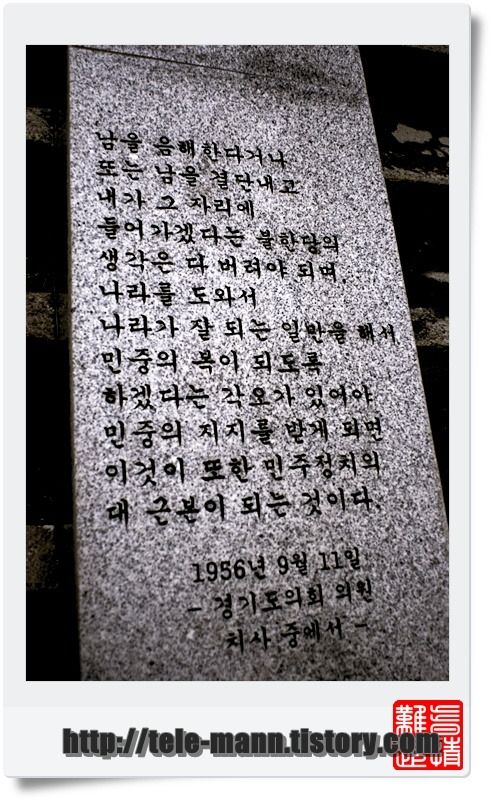 남을 음해한다거나
또는 남을 결단내고
내가 그 자리에
들어가겠다는 불한당의
생각은 다 버려야 되며,
나라를 도와서
나라가 잘 되는 일만을 해서
민중의 복이 되도록
하겠다는 각오가 있어야
민중의 지지를 받게 되면
이것이 또한 민주정치의
대 근본이 되는 것이다.
1956년 9월 11일
- 경기도의회 의원
치사 중에서 -
http://tele-mann.tistory.com